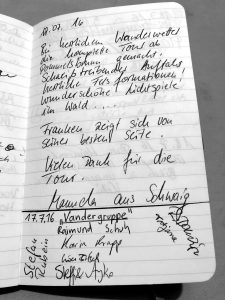 17.07. 16
Bei herrlichem Wanderwetter
die komplette Tour ab
Pommelsbrunn gemacht.
Schweißtreibender Aufstieg
herrliche Felsformationen!
wunderschöne Lichtspiele
im Wald ....
Franken zeigt sich von
seiner besten Seite.
Vielen Dank für die
Tour.
Manuela aus Schwaig
17.7.16 „Wandergruppe"
Raimund Schuh
Karin Krapp
Stefan